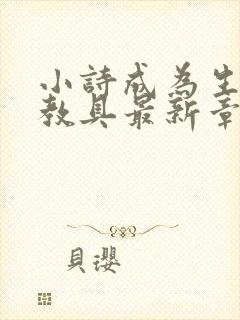 小詩成為生
教具最新章
貝瓔